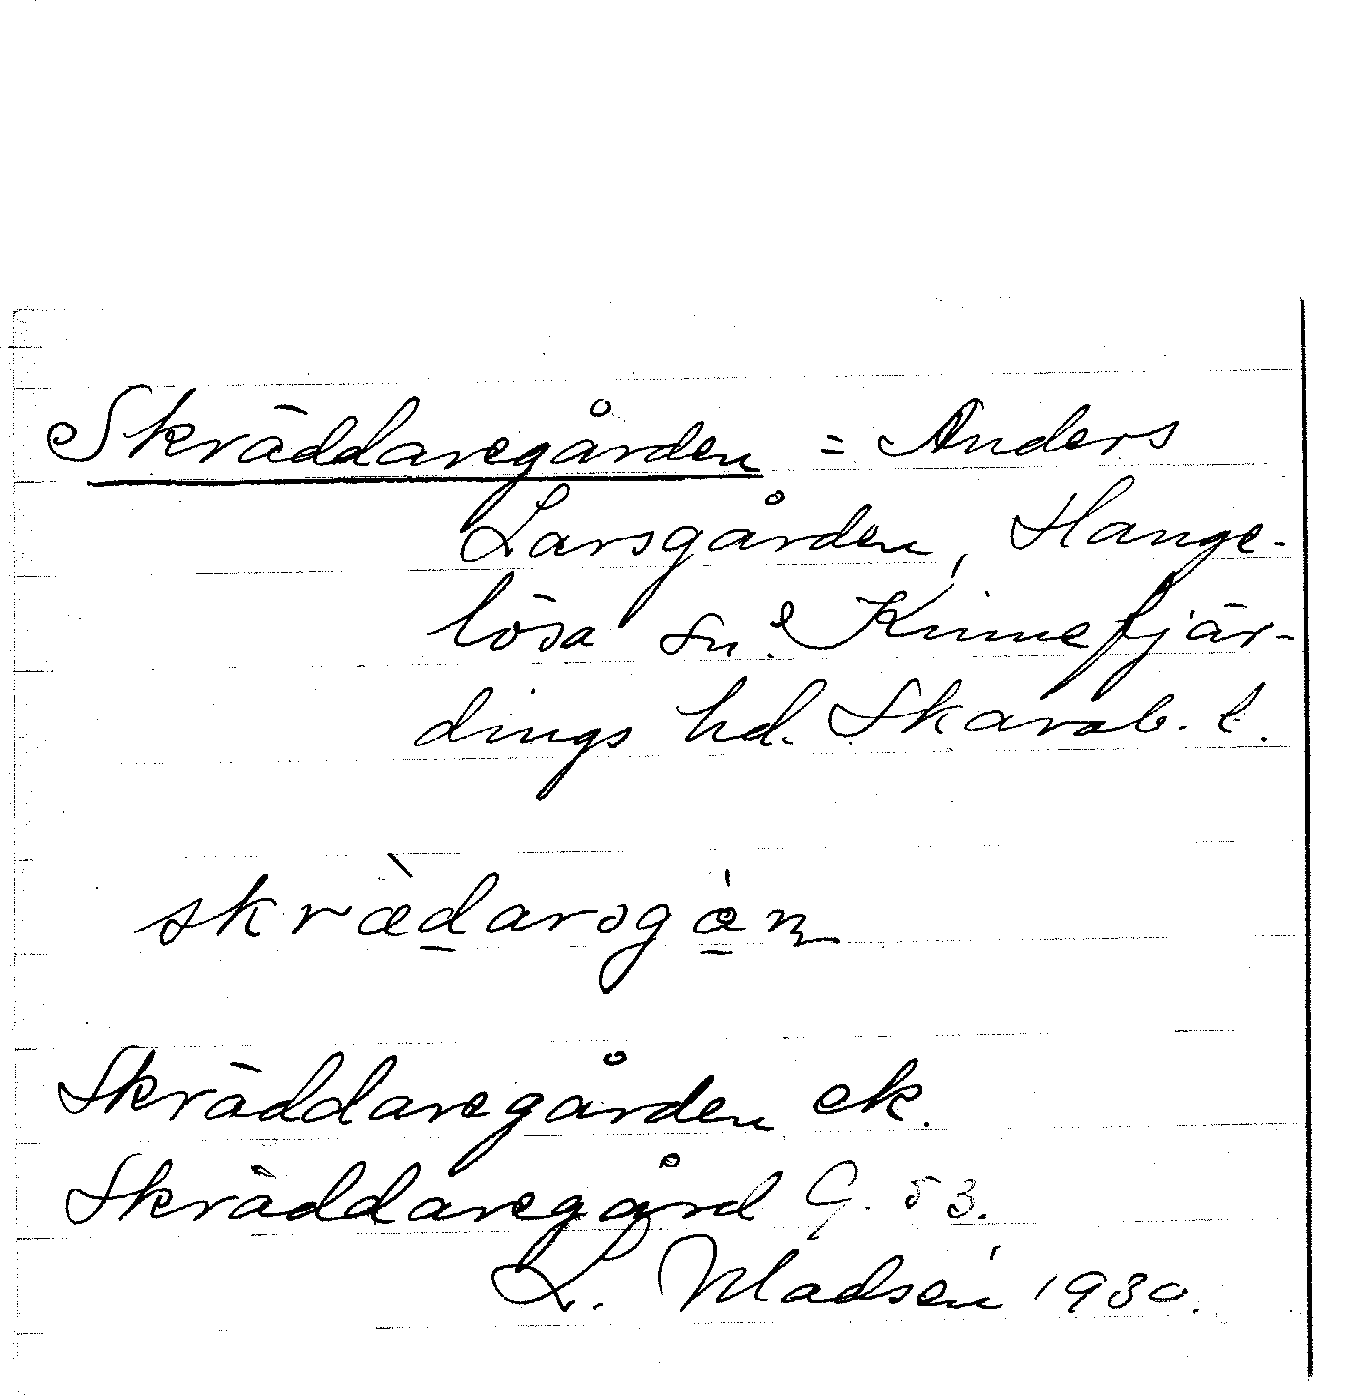 Skräddaregården = Anders
Larsgården, Hange-
lösa sn. Kinnefjär-
dings hd. Skarab. l.
skræ̀darəgá̱n̥
Skräddaregården ek.
Skräddaregård G. 53.
L. Madsén 1930.